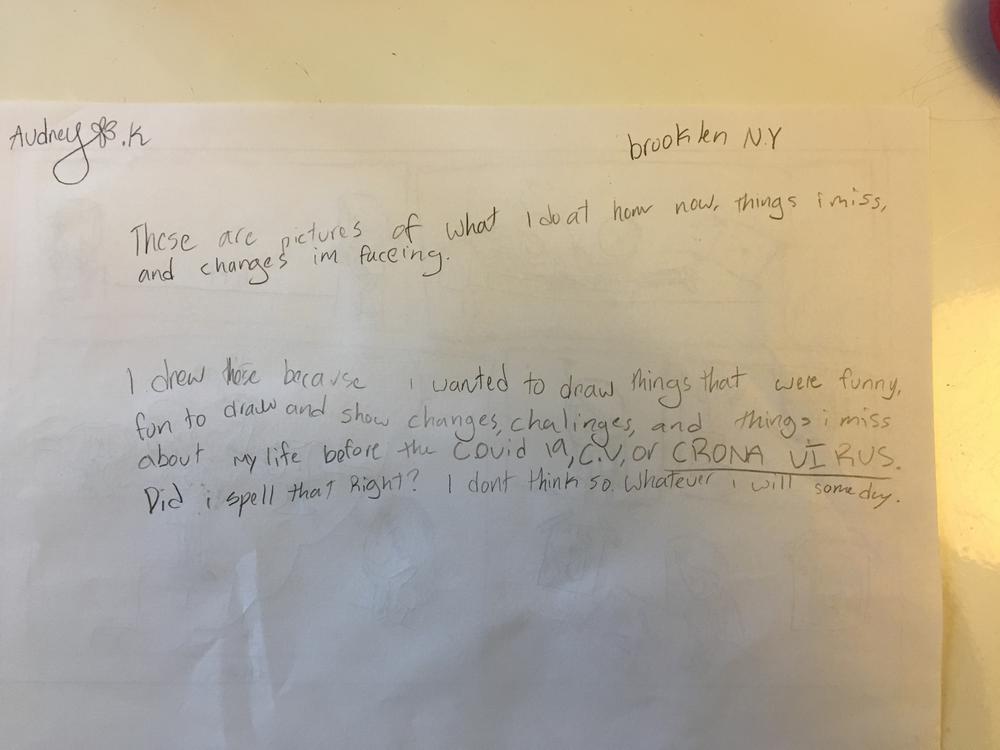 Audrey B.K
brooklen N.Y
These are pictures of what I do at home now, things i miss,
and changes im faceing.
I drew those because i wanted to draw things that were funny,
fun to draw and show changes, chalinges, and things i miss
about my life before the Covid 19, C.V, or CRONA VIRUS.
Did i spell that Right? I dont think so. whatever i will some day.